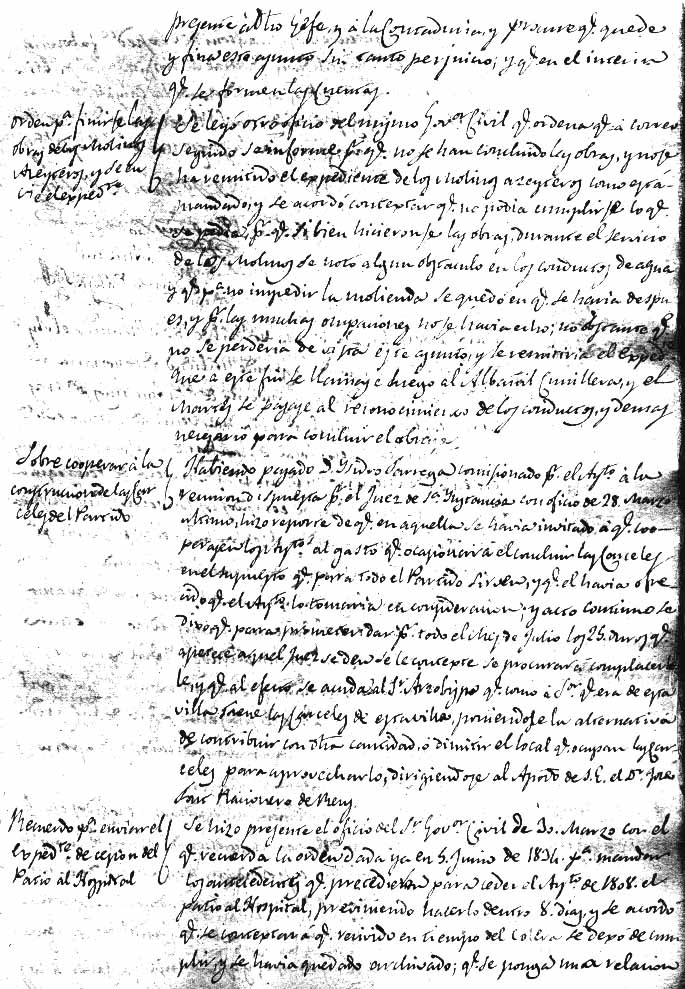 presente à dho Gefe, y à la Contaduria, y procure qe. quede
y fina este asunto sin tanto perjuicio; y qe. en el interin
qe. se formen las Cuentas.
Orden pa. finirse las
obras de los Molinos
Azeyteros, y se en-
vie el expedte.
Se leyó otro oficio del mismo Govor. Civil qe. ordena qe. à correo
seguido se informe pr. qe. no se han concluido las obras, y no se
ha remitido el expediente de los molinos azeyteros como está
mandado; y se acordó contextar qe. no podia cumplirse lo qe.
se pedia, pr. qe. si bien hicieronse las obras, durante el servicio
de los Molinos se notó algun obstaculo en los conductos de agua
y qe. pa. no impedir la molienda se quedó en qe. se haria despu-
es, y pr. las muchas ocupaciones no se havia echo; no obstante qe.
no se perderia de vista este asunto, y se remitiria el exped-
que a este fin se llamase luego al Albañil Cunillera, y el
Marrés se pasase al reconocimiento de los conductos, y demas
necesario para concluir el obra.
Sobre cooperar à la
construccion de las Car-
celes del Partido
Habiendo pasado D. Isidro Farrega comisionado pr. el Ayto. à la
reunion dispuesta pr. el Juez de 1a. Instancia con oficio de 28. Marzo
ultimo, hizo reporte de qe. en aquella se havia invitado à qe. coo-
perasen los Aytos. al gasto qe. ocasionaria el concluir las Carceles
en el supuesto qe. para todo el Partido sirven, y qe. el havia ofre-
cido qe. el Ayto. lo tomaria en consideracion: y acto continuo se
dixo qe. para prometer dar pr. todo el Mes de Julio los 25. duros qe.
apetece aquel Juez se den se le contexte se procurará complacer-
le, y qe. al efecto se acuda al Sr. Arzobispo qe. como à Sor. qe. era de esta
villa tiene las Carceles de esta villa, poniendose la alternativa
de contribuir con otra cantidad, ó dimitir el local qe. ocupan las Car-
celes para aprovecharlo, dirigiendose al Apodo. de S. E. el Dr. José
Racionero de Reus.
Recuerdo pa. enviar el
expedte. de cesion del
Patio al Hospital
Se hizo presente el oficio del Sr. Govor. Civil de 30. Marzo con el
qe. recuerda la orden dada ya en 5. Junio de 1834. pa. mandar
los antecedentes qe. precedieron para ceder el Ayto. de 1808. el
patio al Hospital, previniendo hacerlo dentro 8. dias, y se acordó
qe. se contextará qe. recivido en tiempo del Colera se dexó de cum-
plir, y se havia quedado archivado; qe. se ponga una relacion